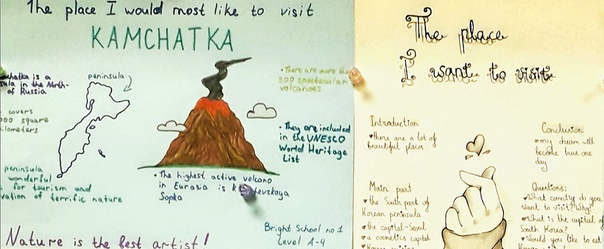 The place I would most like to visit
KAMCHATKA
Kamchatka is a
in the North-
of Russia
peninsula
covers
000 square
kilometers
peninsula
wonderful
for tourism and
of terrific nature
• There are more than
300 spectacular
volcanoes
• They are included
in the UNESCO
World Heritage
List
• The highest active volcano
in Eurasia is
Sopka
Nature is the best artist!
Bright School no 1
Level A-4
The place
I want to visit
Introduction
♥ there are a lot of
beautiful places
Main part
♥ the South part of
Korean peninsula
♥ the capital-Seoul
♥ a cosmetics capital
Conclusion
♥ my dream will
become true one
day
Questions:
♥ What country do you
want to visit? Why?
♥ What is the capital of
South Korea?
♥ Would you like to